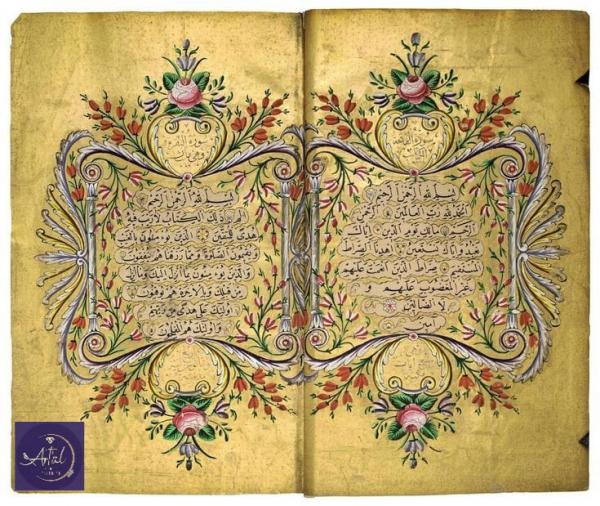 سورة الفاتحة
بسم الله الرحمن الرحيم
الحمد لله رب العالمين الرحمن
الرحيم مالك يوم الدين اياك
نعبد واياك نستعين اهدنا الصراط
المستقيم صراط الذين انعمت عليهم
غير المغضوب عليهم و
لا الضالين
امين
سورة البقرة
بسم الله الرحمن الرحيم
الم ذلك الكتاب لا ريب فيه
هدى للمتقين الذين يؤمنون بالغيب
ويقيمون الصلوة ومما رزقناهم ينفقون
والذين يؤمنون بما انزل اليك وما انزل
من قبلك وبالاخرة هم يوقنون
اولئك على هدى من ربهم
واولئك هم المفلحون
Artal